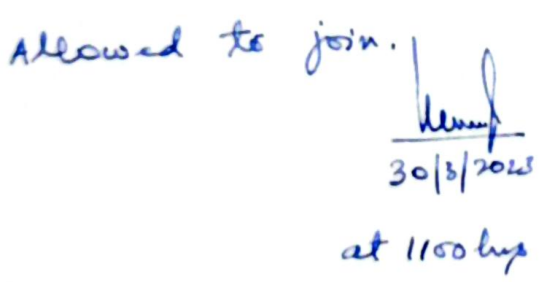 Allowed to join.
30/3/2023
at 1100 hrs